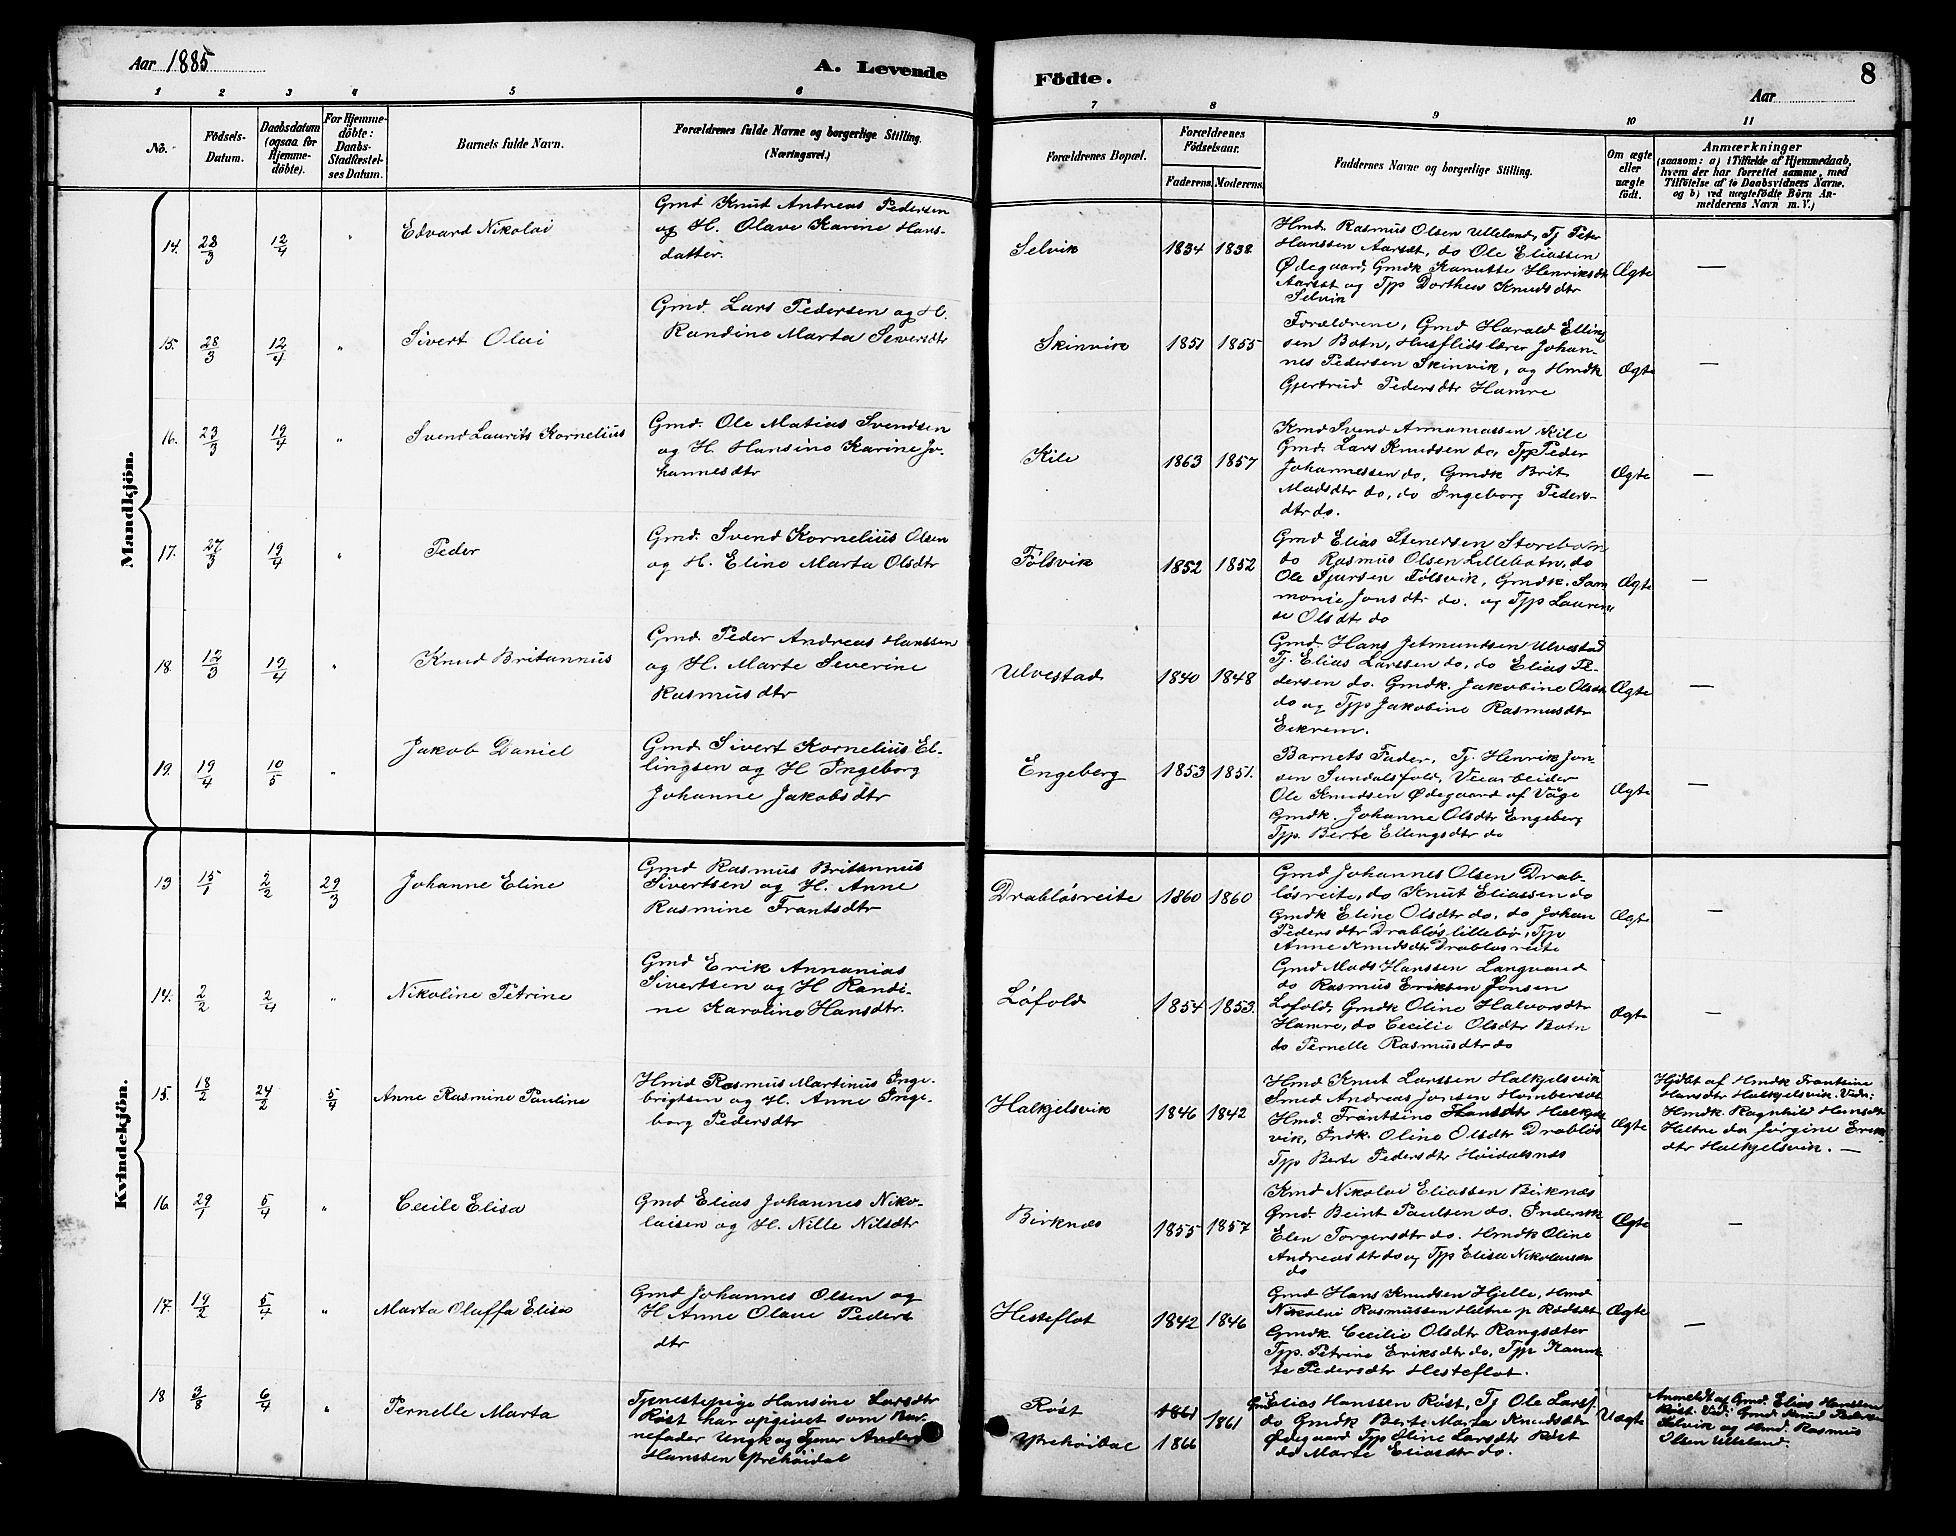 Aar 1885
A. Levende
Födte.
8
Aar
1 2 3 4 5 6 7 8 9 10 11
No.
Födsels-
Datum.
Daabsdatum
(ogsaa for
Hjemme-
döbte).
For Hjemme-
döbte:
Daabs-
Stadfæstel-
ses Datum.
Barnets fulde Navn.
Forældrenes fulde Navne og borgerlige Stilling.
(Næringsvei.)
Forældrenes Bopæl.
Forældrenes
Födselsaar.
Faderens. Moderens.
Faddernes Navne og borgerlige Stilling.
Om ægte
eller
uægte
födt.
Anmærkninger
(saasom: a) i Tilfælde af Hjemmedaab,
hvem der har forrettet samme, med
Tilföielse af to Daabsvidners Navne.
og b) ved uægtefödte Börn An-
melderens Navn m. V.)
Mandkjön.
14. 28/3 12/4 " Edvard Nikolai
Gmd Knud Andreas Pedersen
og H. Olave Karine Hans-
datter.
Selvik 1834 1838
Hmd. Rasmus Olsen Ulleland, Tj Peter
Hanssen Aarsæt, do Ole Eliassen
Ødegaard, Gmdk Kanutte Henriksdtr
Aarsæt og Tjp Dorthea Knudsdtr
Selvik
Ægte —
15. 28/3 12/4 " Sivert Olai
Gmd. Lars Pedersen og H.
Randine Marta Siversdtr
Skinvik 1851 1855
Forældrene, Gmd Harald Elling
sen Botn, Husflidslærer Johan-
nes Pedersen Skinvik, og Hmdk
Gjertrud Pedersdtr Hamre
Ægte —
16. 23/3 19/4 " Svend Laurits Kornelius
Gmd. Ole Matias Svendsen
og H. Hansine Karine Jo-
hannesdtr
Kile 1863 1857
Kmd Svend Annaniassen Kile
Gmd. Lars Knudsen do, Tjp Peder
Johannessen do, Gmdk Brit
Madsdtr do, do Ingeborg Peders-
dtr do.
Ægte —
17. 27/3 19/4 " Peder
Gmd. Svend Kornelius Olsen
og H. Eline Marta Olsdtr
Følsvik 1852 1852
Gmd Elias Stenersen Storebotn
do Rasmus Olsen Lillebotn, do
Ole Sjursen Følsvik, Gmdk. Sam-
monie Jonsdtr do. og Tjp Lauren
se Olsdtr do
Ægte —
18 12/3 19/4 " Knud Britannus
Gmd. Peder Andreas Hanssen
og H. Marte Severine
Rasmusdtr
Ulvestad 1840 1848
Gmd. Hans Jetmundsen Ulvestad
Tj. Elias Larssen do, do Elias Pe-
dersen do. Gmdk. Jakobine Olsdtr
do og Tjp Jakobine Rasmusdtr
Eikrem.
Ægte —
19. 19/4 10/5 " Jakob Daniel
Gmd. Sivert Kornelius El-
lingsen og H Ingeborg
Johanne Jakobsdtr
Engeberg 1853 1851.
Barnets Fader, Tj. Henrik Jon
sen Sundalsfold, Veiarbeider
Ole Knudsen Ødegaard af Vaage
Gmdk. Johanne Olsdtr Engeberg
Tjp. Berte Ellingsdtr do
Ægte —
Kvindekjön.
13 15/1 2/2 29/3 Johanne Eline
Gmd Rasmus Britannus
Sivertsen og H. Anne
Rasmine Frantsdtr
Drabløsreite 1860 1860
Gmd Johannes Olsen Drab-
løsreite, do Knut Eliassen do
Gmdk Eline Olsdtr do, do Johan
Pedersdtr Drabløslillebø, Tjp
Anne Knudsdtr Drabløsreite
Ægte —
14. 2/2 2/4 " Nikoline Petrine
Gmd Erik Annanias
Sivertsen og H Randi-
ne Karoline Hansdtr.
Løfold 1854 1853.
Gmd Mads Hanssen Langvand
do Rasmus Eriksen Jonsen
Løfold, Gmdk Oline Halvorsdtr
Hamre, do Cecilie Olsdtr Botn
do Pernelle Rasmusdtr do
Ægte —
15. 18/2 24/2 5/4 Anne Rasmine Pauline
Hmd Rasmus Martinus Inge-
brigtsen og H. Anne Inge-
borg Pedersdtr
Halkjelsvik 1846 1842
Hmd Knut Larssen Halkjelsvik
Smed Andreas Jonsen Hombersæt
Hmd. Frantsine Hansdtr Halkjels
vik, Indk. Oline Olsdtr Drabløs
Tjp Berte Pedersdtr Høidalsnes
Ægte
Hjdøbt af Hmdk Frantsine
Hansdtr Halkjelsvik. Vidn:
Hmdk Ragnhild Hansdtr
Heltne do Jørgine Erik
dtr Halkjelsvik. —
16 29/1 5/4 " Cecile Elisa
Gmd Elias Johannes Niko-
laisen og H. Nille Nilsdtr
Birknes 1855 1857
Kmd Nikolai Eliassen Birknes
Gmd. Beint Paulsen do. Inderstk
Elen Torgersdtr do. Hmdk Oline
Andreasdtr do og Tjp Elisa Nikolaisen
do
Ægte —
17. 19/2 5/4 " Marta Oluffa Elisa
Gmd Johannes Olsen og
H. Anne Olave Peders
dtr
Hesteflot 1842 1846
Gmd Hans Knudsen Hjelle, Hmd
Nikolai Rasmussen Heltne p Rødset
Gmdk. Cecilie Olsdtr Rangsæter
Tjp. Petrine Eriksdtr do, Tjp Kanut-
te Pedersdtr Hesteflot.
Ægte —
18 3/8 6/4 " Pernelle Marta
Tjenestepige Hansine Larsdtr
Røst har opgivet som Bar-
nefader Ungk og Tjener Anders
Hanssen Ytrehøidal
Røst
Ytrehøidal
1861
1866
1861
Gmd Elias Hanssen Røst, Tj Ole Larss.
do Gmdk Berte Maria Knudsdtr
Ødegaard Tjp Eline Larsdtr Røst
do Marte Eliasdtr do.
Uægte
Anmeldt af Gmd. Elias Hanssen
Røst. Vid: Gmd. Knud Pedersen
Selvik og Hmd. Rasmus
Olsen Ulleland.